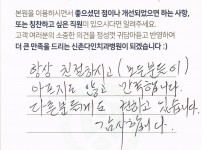 본원을 이용하시면서 좋으셨던 점이나 개선되었으면 하는 사항,
또는 칭찬하고 싶은 직원이 있으시다면 알려주세요.
고객 여러분의 소중한 의견을 정성껏 귀담아듣고 반영하여
더 큰 만족을 드리는 신촌다인치과병원이 되겠습니다 :)
항상 친절하시고 (모든분들이)
아프지도 않고 만족합니다.
다른분들께도 권하고 있습니다.
감사합니다.